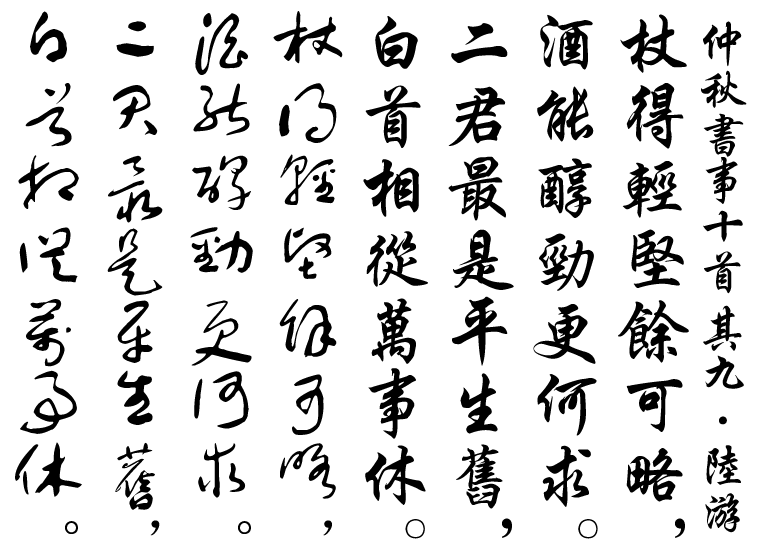 仲秋書事十首其九・陸游
杖得輕堅餘可略，
酒能醇勁更何求。
二君最是平生舊，
白首相從萬事休。
杖得輕堅餘可略，
酒能醇勁更何求。
二君最是平生舊，
白首相從萬事休。